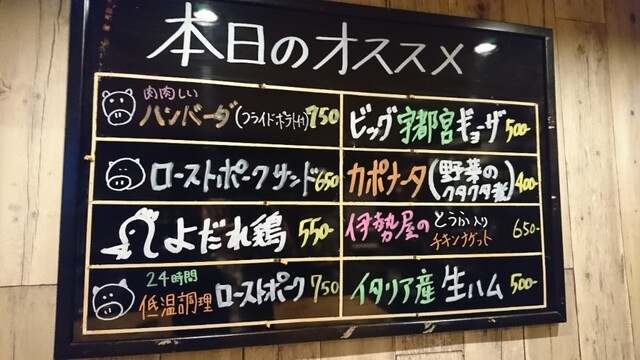 本日のオススメ
肉肉しい
ハンバーグ(フライドポテト付)750
ローストポークサンド650
よだれ鶏 550-
24時間
低温調理 ローストポーク 750
ビッグ宇都宮ギョーザ 500-
カポナータ(野菜のクタクタ煮)400-
伊勢屋の とうふ入り チキンナゲット 650-
イタリア産 生ハム 500-